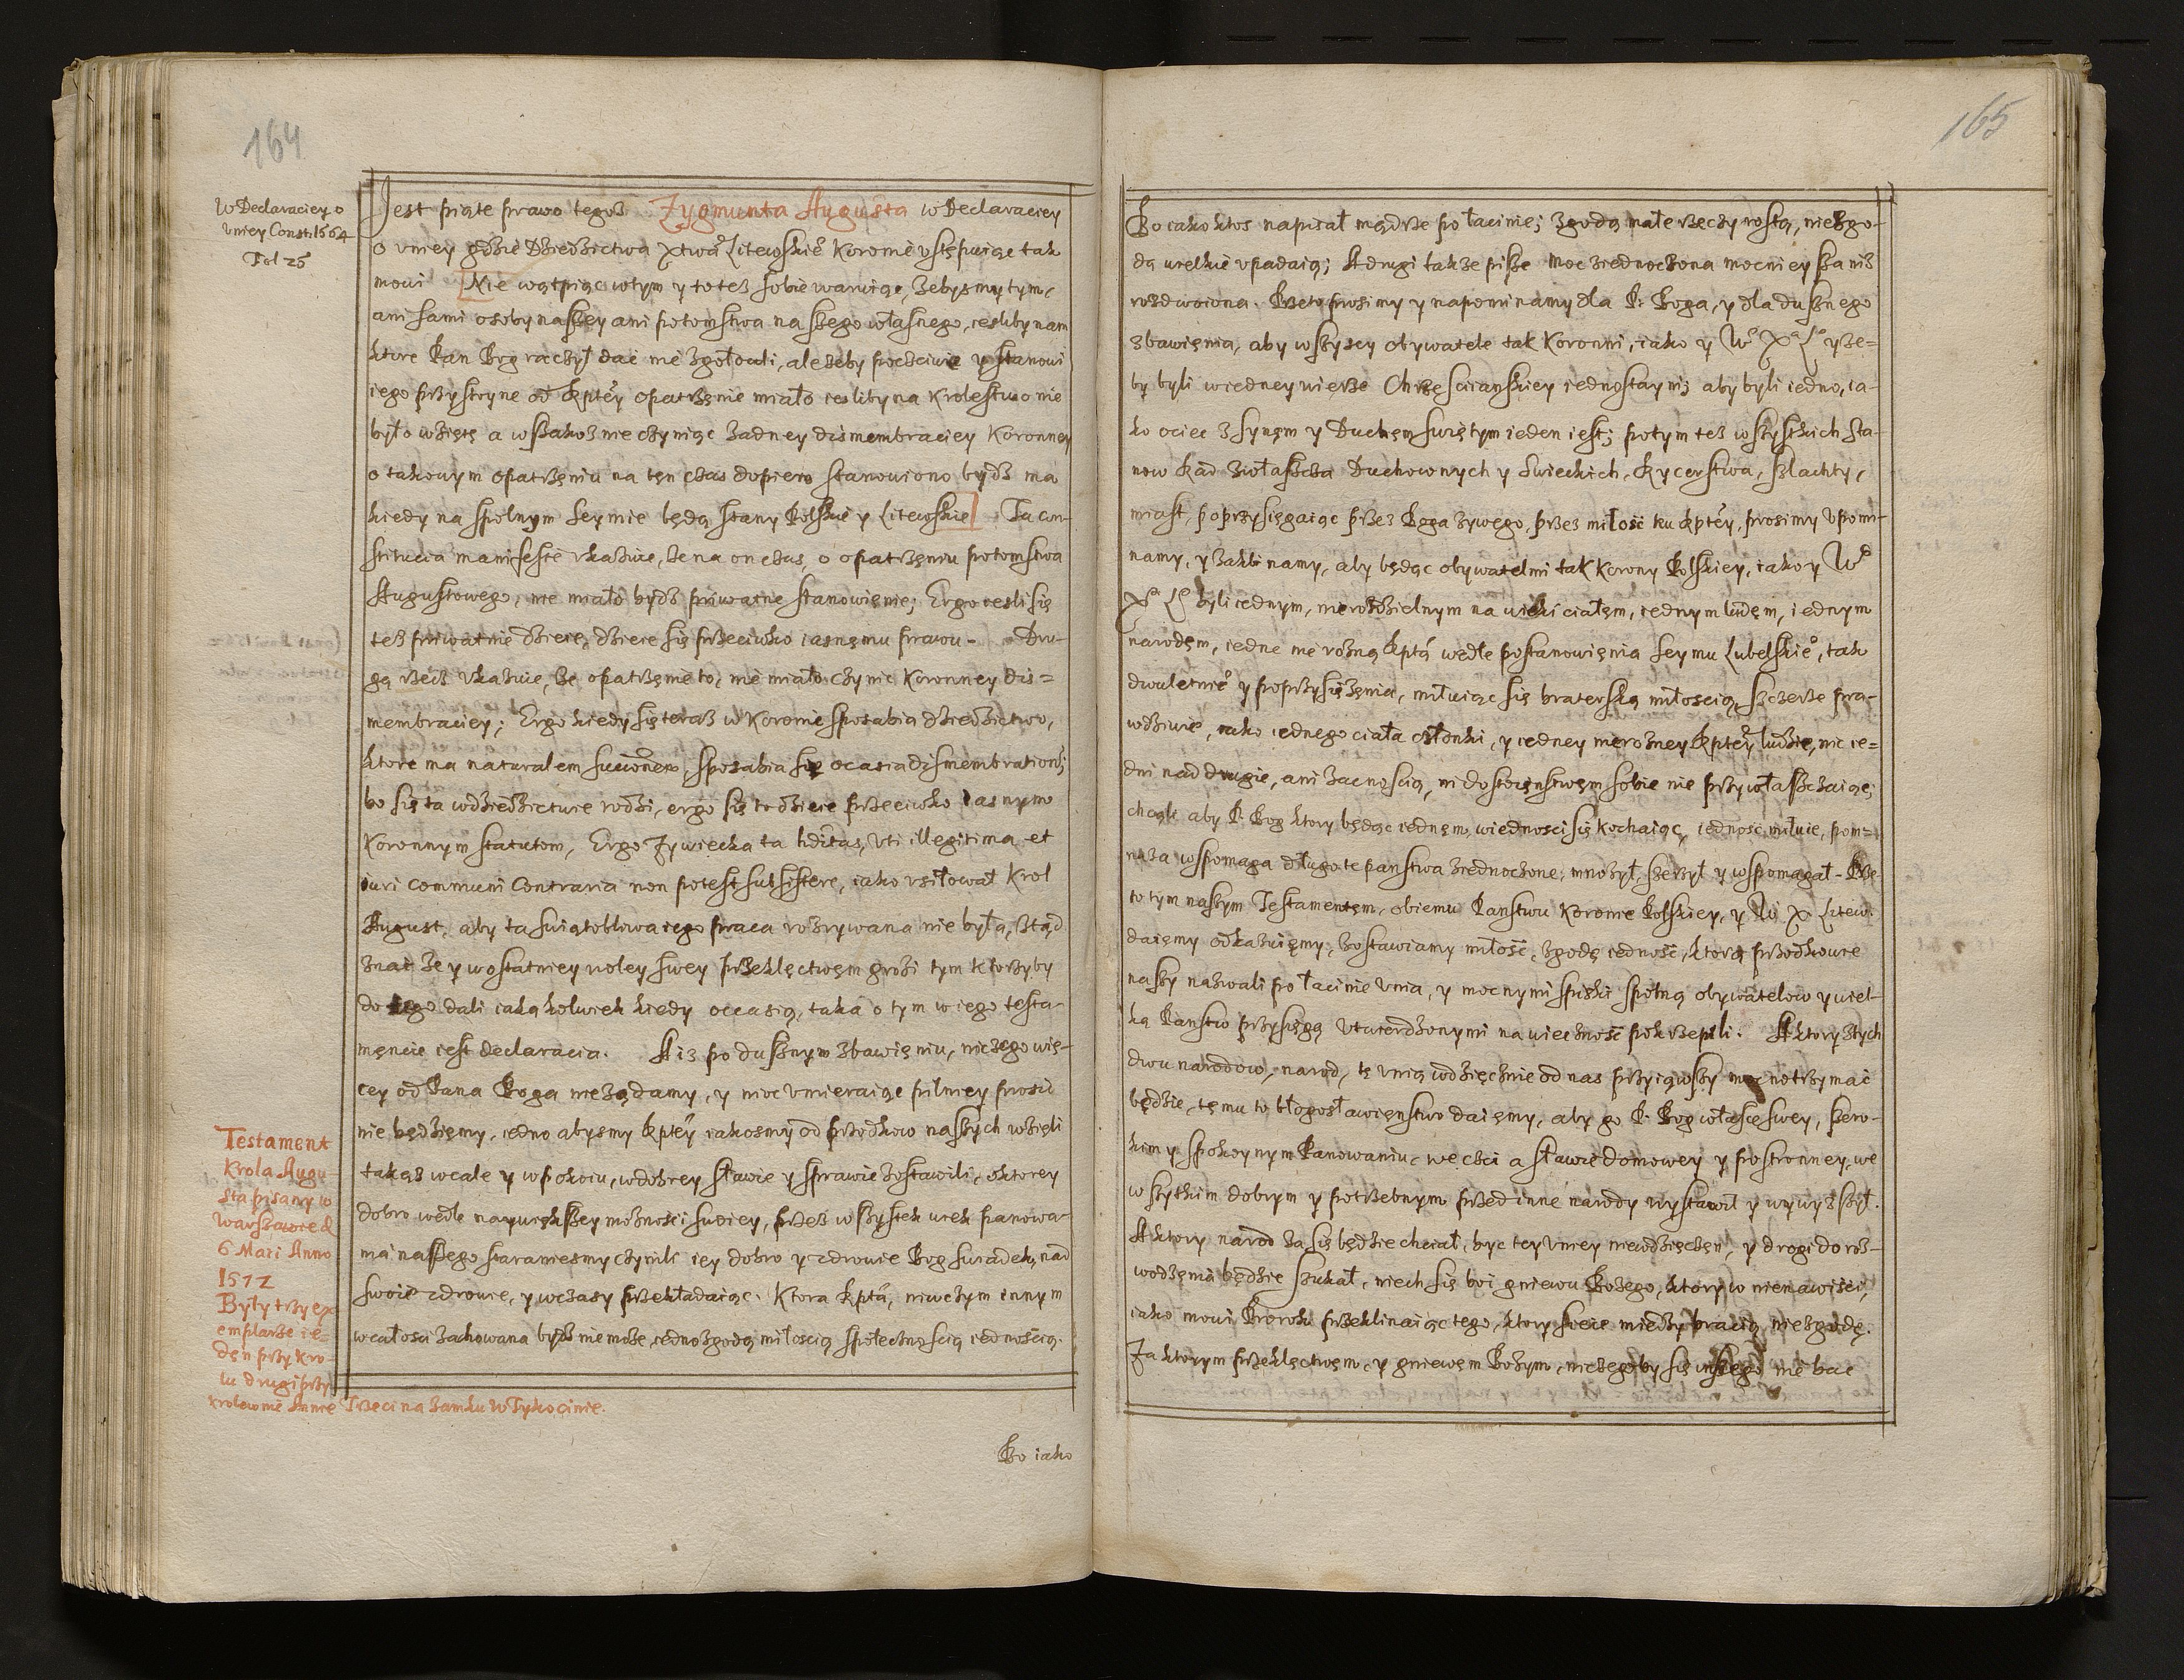 164
W Declaraciey o
vniey Constt 1564
Fol 25
Jest piąte prawo tegoß Zygmunta Augusta w Declaraciey
o vniey gdzie Dziedzictwa Xtwa Litewskie° Koronie vstępuiąc tak
mowi [Nie wątpiąc w tym y to też sobie waruiąc, żebysmy tym,
ani sami osoby naszey ani potomstwa naszego własnego, iesliby nam
ktore Pan Bog raczył dać nie zgołocili, ale żeby poczciwie y stanowi
iego przystoyne od Rptey opatrzęnie miało iesliby na Krolestwo nie
było wzięte a wszakoż nie czyniąc żadney dismembraciey Koronney
o takowym opatrzęniu na tęn czas dopiero stanowiono bydź ma
kiedy na spolnym Seymie będą stany Polskie y Litewskie] Ta con-
stitucia manifeste vkazuie, że na on czas, o opatrzęniu potomstwa
Augustowego, nie miało bydź priwatne stanowięnie; Ergo iesli się
też priwatnie dzieie, dzieie się przeciwko iasnęmu prawu - Dru-
gą rzecz vkazuie, że opatrzęnie to, nie miało czynic Koronney dis=
membraciey; Ergo kiedy się teraz w Koronie sposabia dziedzictwo,
ktore ma naturalem successionem, sposabia się ocasia dismembrationis
bo się ta w dziedzictwie rodzi, ergo się to dzieie przeciwko iasnym
Koronnym statutom, Ergo Zywiecka ta hditas, vti illegitima et
iuri communi Contraria non potest subsistere, iako vsiłował Krol
August, aby ta swiątobliwa iego praca rozrywana nie była, ztąd
znać że y w ostatniey woley swey przeklęctwęm grozi tym ktorzyby
do tego dali iaką kolwiek kiedy occasią, taka o tym w iego testa-
męncie iest declaracia. A iż po dusznym zbawięniu, niczego wię-
cey od Pana Boga nie żądamy, y nioc vmieraiąc pilniey prosić
nie będzięmy, iedno abysmy Rptey iakosmy od przodkow naszych wzięli
takąż w cale y w pokoiu, w dobrey sławie y sprawie zostawili, oktorey
dobro wedle naywiększey możności swoiey, przeż wszystek wiek panowa-
nia naszego staraniesmy czynili iey dobro y zdrowie Bog swiadek, nad
swoie zdrowie, y wczasy przekładaiąc. Ktora Rpta, niwczym innym
w całosci zachowana bydź nie może, iedno zgodą miłoscią społecznością iednością.
Testament
Krola Augu-
sta pisany w
Warszawie d
6 Maii Anno
1572
Były trzy ex
emplarze ie=
dęn przy kro-
lu drugi przy
krolewnie Annie Trzeci na Zamku w Tykocinie.
Bo iako
165
Bo iako ktos napisał mądrze po łacinie; zgodą małe rzeczy rostą, niezgo-
dą wielkie vpadaią; A drugi takze pisze moc ziednoczona mocnieysza niż
rozdwoiona. Przeto prosimy y napominamy dla P. Boga, y dla dusznego
zbawięnia, aby wszyscy obywatele tak Koronni, iako y W° X° L° y że=
by byli w iedney wierze Chrzęscianskiey iednostayni; aby byli iedno, ia-
ko ociec z synęm y Duchęm swiętym ieden iest; potym też wszystkich sta-
now Rad zwłaszcza Duchownych y Swieckich, Rycerstwa, szlachty,
miast, poprzysięgaiąc przez Boga żywego, przez miłość ku Rptey, prosimy vpomi-
namy, y zaklinamy, aby będąc obywatelmi tak Korony Polskiey, iako y W°
X° L° byli iednym, nierozdzielnym na wieki ciałęm, iednym ludęm, iednym
narodęm, iedne nie rożną Rptą wedle postanowięnia Seymu Lubelskie°, tak
dwuletnie° y poprzysiężęnia, miłuiąc się braterską miłoscią, szczerze pra-
wdziwie, iako iednego ciała członki, y iedney nierożney Rptey ludzie, nic ie=
dni nad drugie, ani zacnoscią, ni dostoięnstwęm sobie nie przywłaszczaiąc;
chcąle aby P. Bog ktory będąc iednęm, wiednosci się kochaiąc, iedność miłuie, pom=
naża wspomaga długo te panstwa ziednoczone, mnożył, szerzył y wspomagał - Prze
to tym naszym Testamentęm, obiemu Panstwu Koronie Polskiey, y W. X. Litew.
daięmy odkazuięmy, zostawiamy miłość, zgodę iedność, ktorą przodkowie
naszy nazwali po łacinie vnia, y mocnymi spiski spólną obywatelow y wiel-
ką Panstw przysięgą vtwierdzonymi na wieczność pokrzepili. A ktory z tych
dwu narodow, narod, tę vnią wdzięcznie od nas przyiąwszy mocno trzymać
będzie, tęmu to błogosławięnstwo daięmy, aby go P. Bog w łasce swey, szero-
kim y spokoynym Panowaniu, we czci a sławie domowey y postronney, we
wszytkim dobrym y potrzebnym przed inne narody wystawił y wywyższył.
A ktory narod za się będzie chciał, byc tey vniey niewdzięczęn, y drogi do roz-
wodzęnia będzie szukał, niech się boi gniewu Bożego, ktory w nienawiści,
iako mowi Prorok przeklinaiąc tego, ktory sieie między bracią niezgodę.
Za ktorym przeklęctwęm, y gniewęm Bożym, niczegoby się inszego nie bac